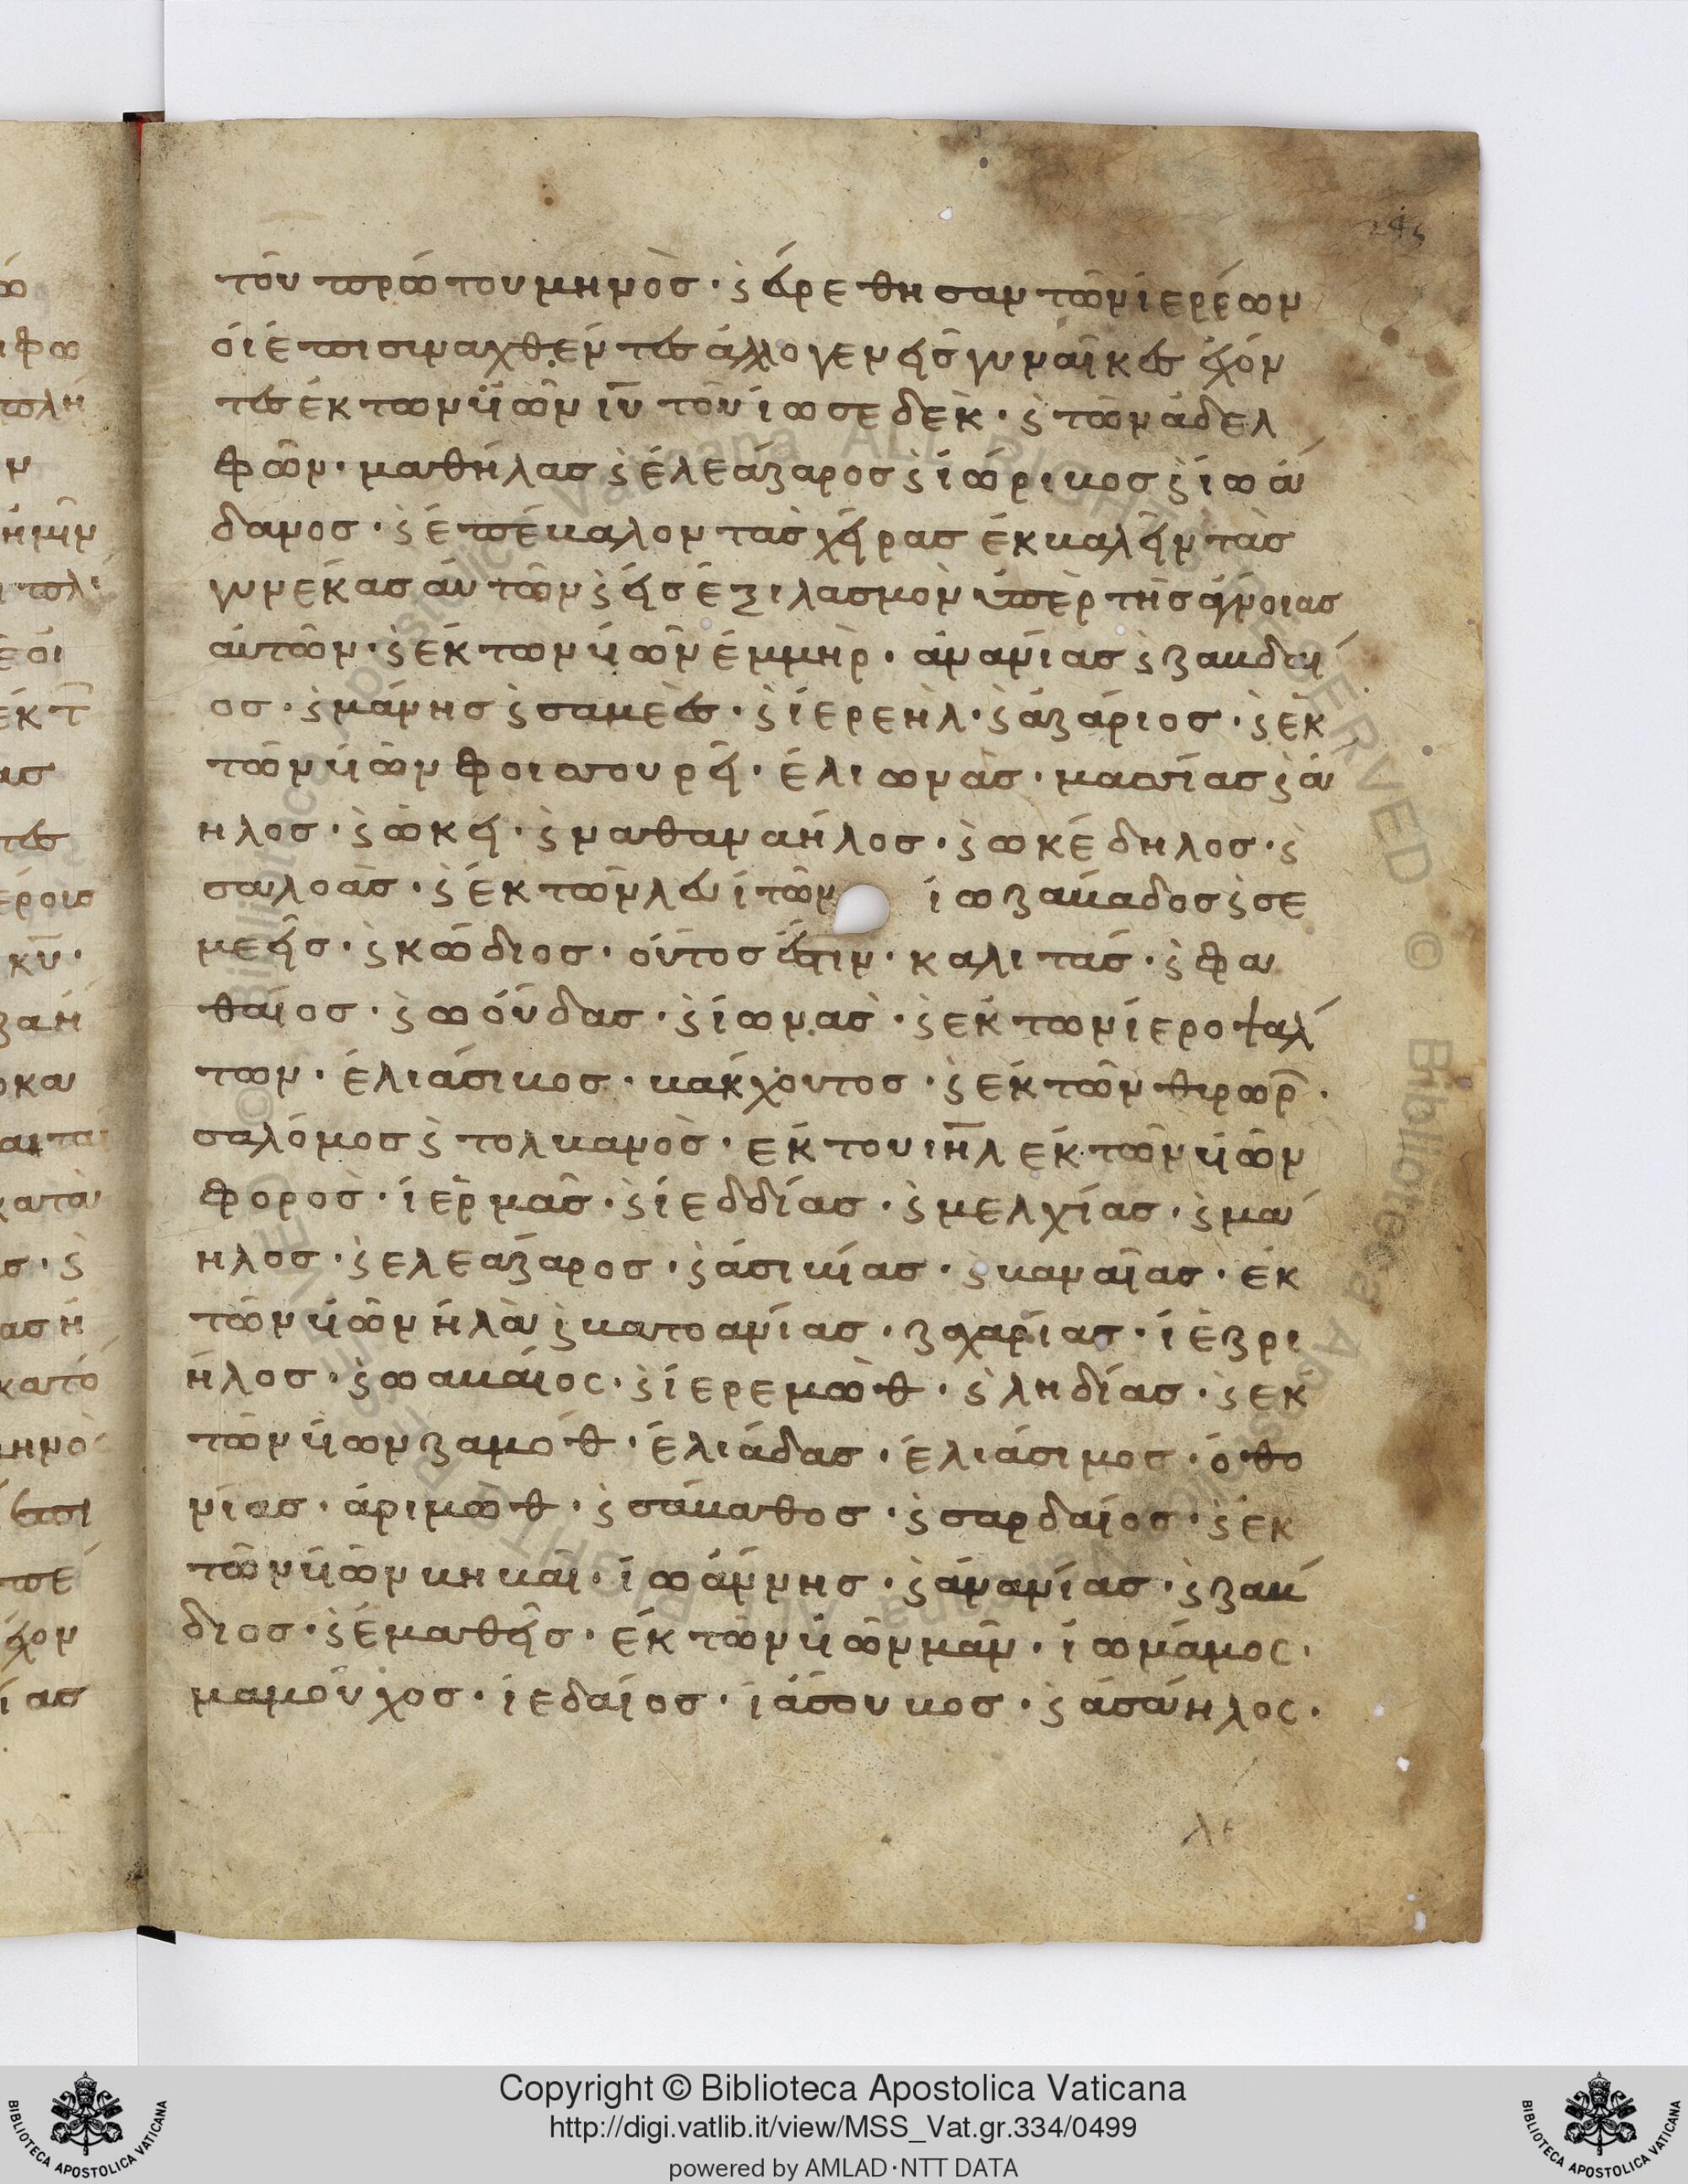 τοῦ πρώτου μηνὸς · ϛ̀ εὑρέθησαν τῶν ἱερέων
οἱ ἐπισυναχθέντες ἀλλογενεῖς γυναῖκες ἔχόν
τες ἐκ των ϋἱῶν ιυ̅ τοῦ ἰωσεδεκ · ϛ̀ τῶν ἀδελ
φῶν · μαθήλασ ϛ̀ ἐλεάζαροσ ϛ̀ ἰώρικοσ ϛ̀ ἰωά
δανοσ · ϛ̀ ἐπέκαλον τασ χεῖρασ ἐκκαλεῖν τὰσ
γυνέκασ αὐτῶν ϛ̀ εἰσ ἐξιλασμὸν ὑπὲρ τῆσ ἀγνοιασ
αὐτῶν · ϛ̀ ἐκ των υἱῶν ἐμμηρ · ἀνανίασ ϛ̀ ζακδαί
οσ · ϛ̀ μάνησ ϛ̀ σαμεὲσ · ϛ̀ ἱερεηλ · ϛ̀ ἀζάριοσ · ϛ̀ ἐκ
τῶν υἱῶν φοισουρεῖ · ἐλιωνὰσ · μασίασ ϛ̀ ἀ
ηλοσ · ϛ̀ ὠκεί · ϛ̀ ναθαναήλοσ · ϛ̀ ωκέδηλοσ · ϛ̀
σαλοὰσ · ϛ̀ ἐκ τῶν λευίτῶν ἰωζάκαδοσ ϛ̀ σε
μεεῖσ · ϛ̀ κώδιοσ · οὗτοσ ἐστιν · καλιτάσ · ϛ̀ φα
θαίοσ · ϛ̀ ωούδασ · ϛ̀ ἰωνασ · ϛ̀ ἐκ των ἱεροψαλ
των · ἐλιάσικοσ · κάκχουτοσ · ϛ̀ ἐκ τῶν θυρωρ̅ ·
σαλόμοσ ϛ̀ τολκανοσ · ἐκ του ιη̅λ ἐκ τῶν υἱῶν
φοροσ · ἱερμᾶσ · ϛ̀ ἱεδδίασ · ϛ̀ μελχίασ · ϛ̀ μα
ηλοσ · ϛ̀ ελεαζαροσ · ϛ̀ ἀσιϊίασ · ϛ̀ καναίασ · ἐκ
τῶν υἱῶν ἠλὰ ϛ̀ κατοανίασ · ζαχαρίασ · ἱεζρι
ήλοσ · ϛ̀ ωακάϊος · ϛ̀ ἱερεμὼθ · ϛ̀ ληδίασ · ϛ̀ ἐκ
τῶν υἱων ζαμόθ · ἐλιάδασ · ἐλιάσιμοσ · ὀθο
νίασ · ἀριμὼθ · ϛ̀ σάκαθοσ · ϛ̀ σαρδαίοσ · ϛ̀ ἐκ
τῶν υἱῶν κηκαῖ · ἰωάννησ · ϛ̀ ἀνανίασ · ϛ̀ ζακ
διοσ · ϛ̀ ἐμαθεῖσ · ἐκ τῶν υἱῶν μαν · ἰωμάμος ·
μαμοῦχοσ · ἱεδαίοσ · ἰάσουκοσ · ϛ̀ ἀσάηλος ·
Copyright © Biblioteca Apostolica Vaticana
http://digi.vatlib.it/view/MSS_Vat.gr.334/0499
powered by AMLAD·NTT DATA